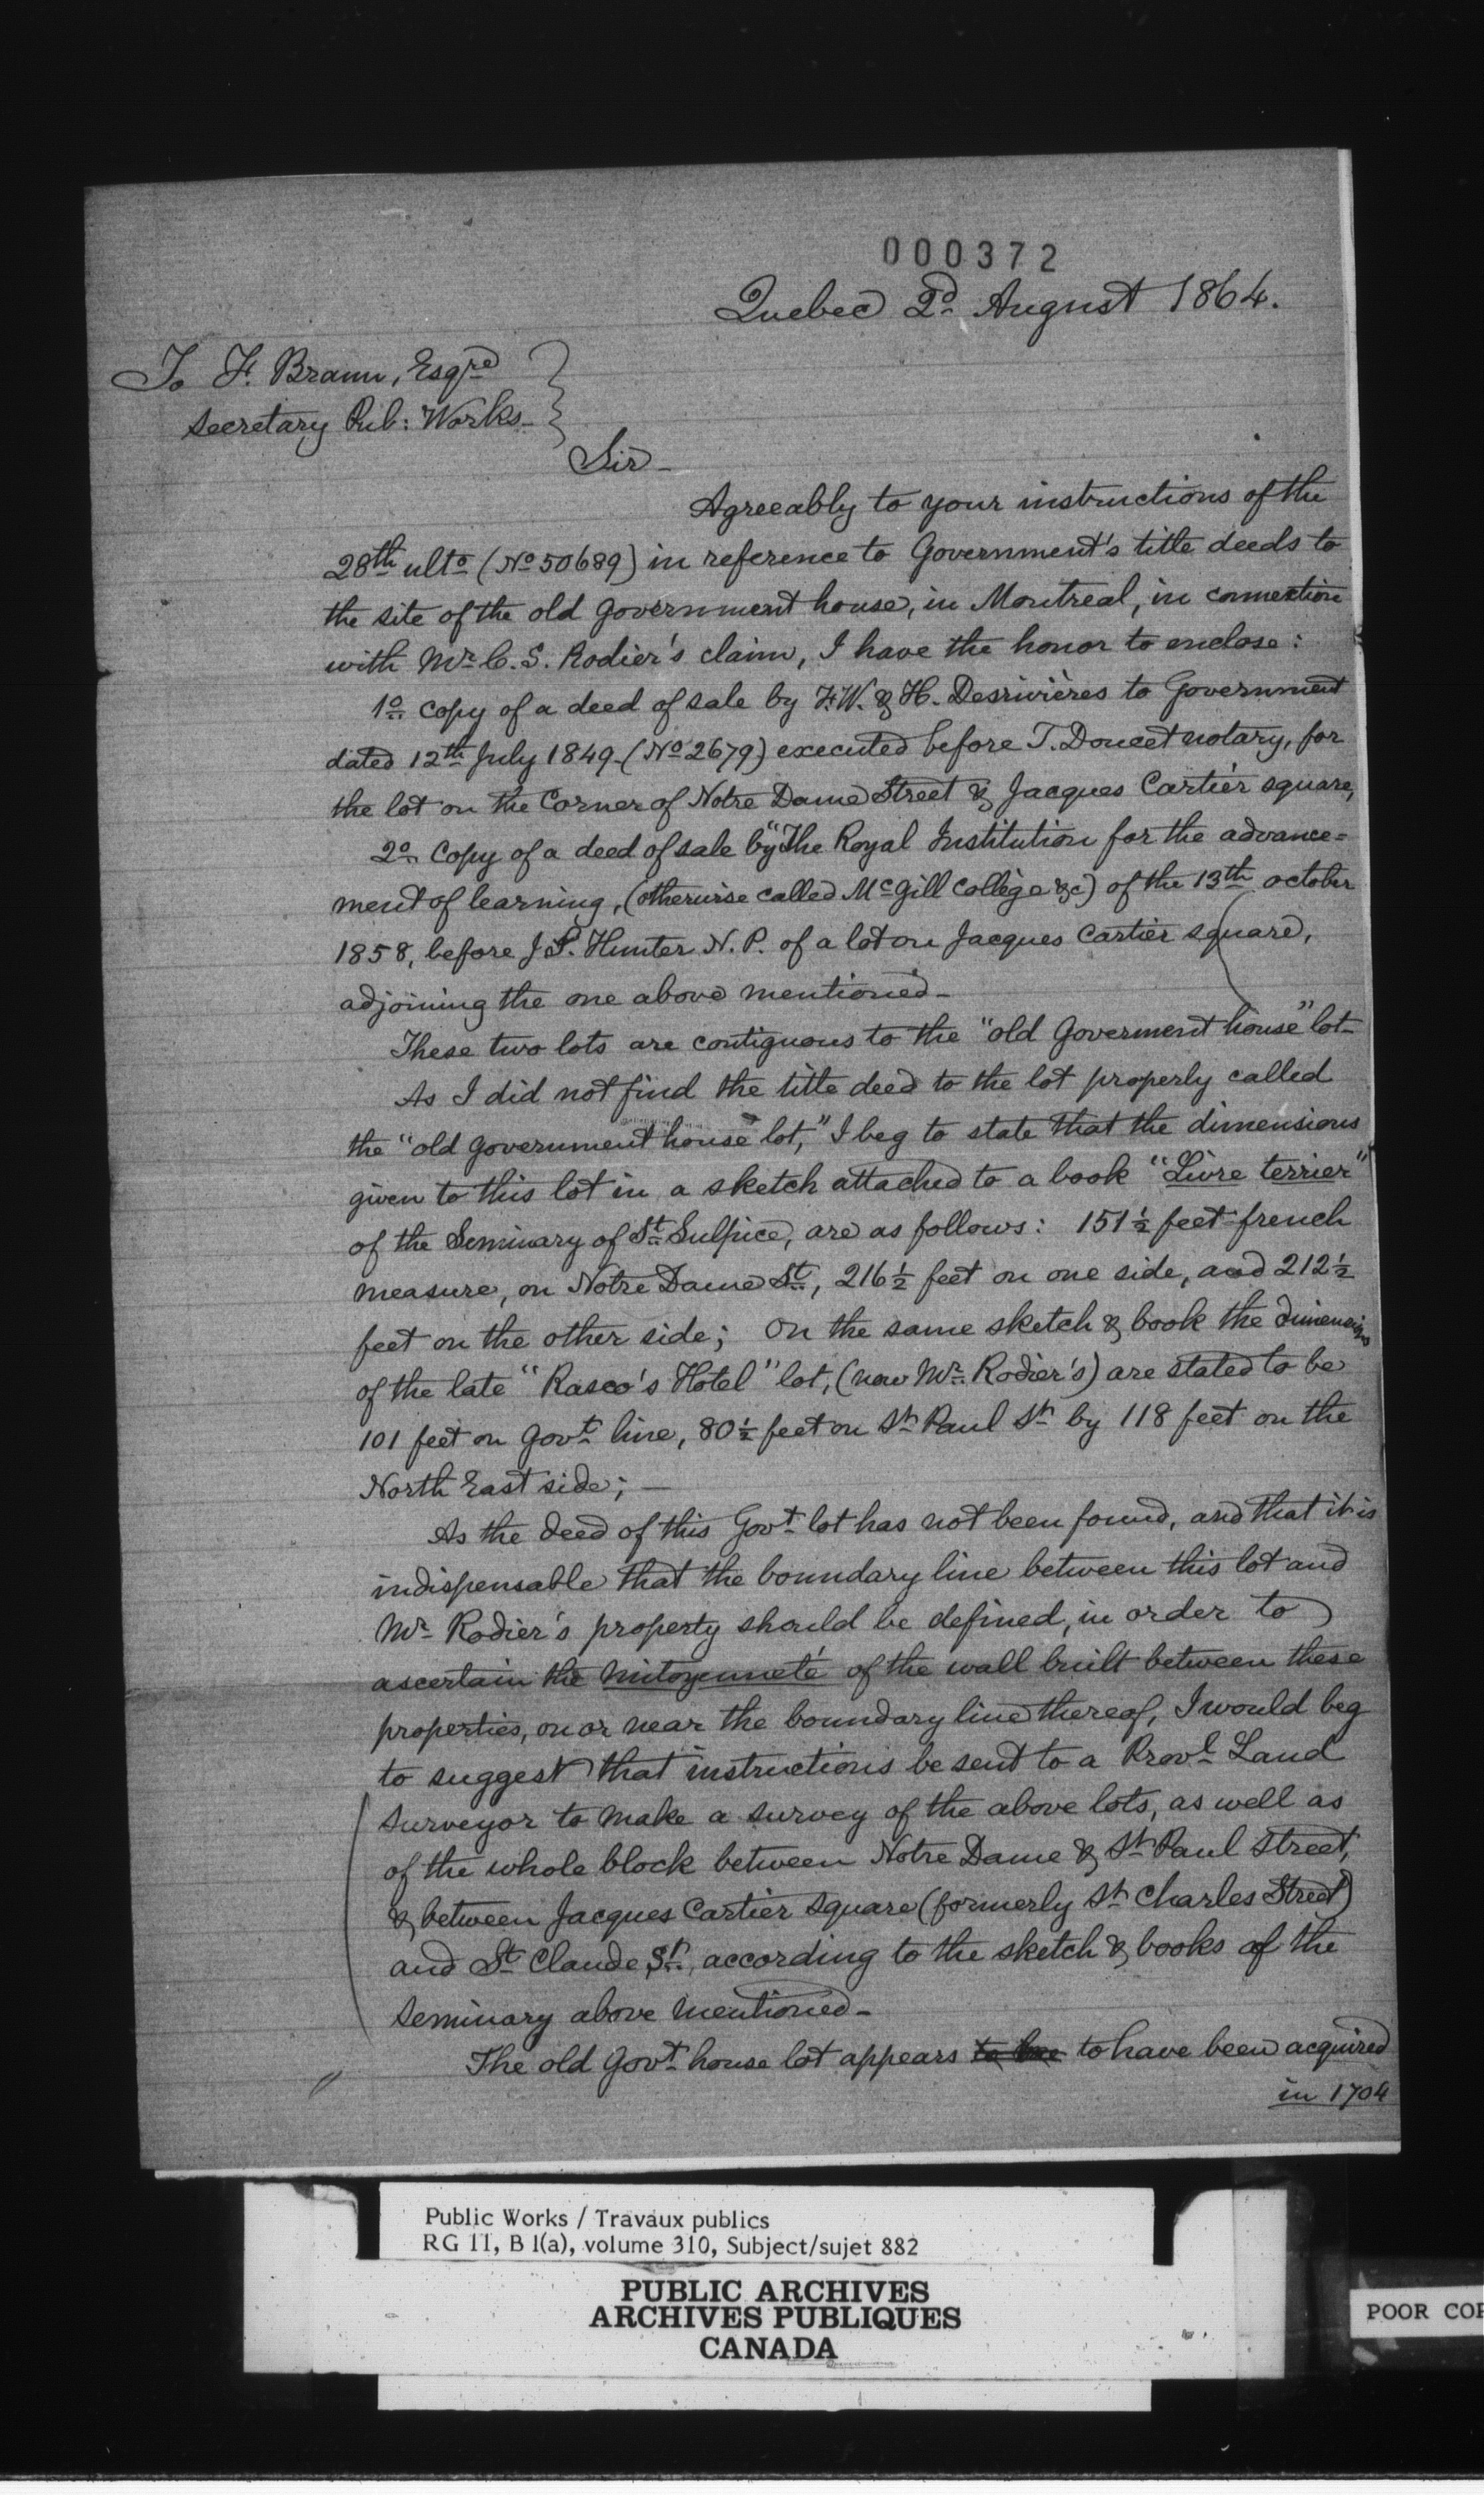 000372
Quebec 2d August 1864.
To F. Braun, Esqre
Secretary Pub: Works_
Sir_
Agreeably to your instructions of the
28th ulto (No 50689) in reference to Government's title deeds to
the site of the old government house, in Montreal, in connection
with Mr C. S. Rodier's claim, I have the honor to enclose:
1o copy of a deed of sale by F.W. & H. Desrivières to Government
dated 12th July 1849_ (No 2679) executed before T. Doucet notary, for
the lot on the Corner of Notre Dame Street & Jacques Cartier square,
2o Copy of a deed of sale by "The Royal Institution for the advance=
ment of learning, (otherwise called McGill college &c) of the 13th october
1858, before J S. Hunter N. P. of a lot on Jacques Cartier square,
adjoining the one above mentioned_
These two lots are contiguous to the "old Goverment house" lot_
As I did not find the title deed to the lot properly called
the "old government house lot," I beg to state that the dimensions
given to this lot in a sketch attached to a book "Livre terrier"
of the Seminary of St Sulpice, are as follows: 151 1/2 feet french
measure, on Notre Dame St, 216 1/2 feet on one side, and 212 1/2
feet on the other side; On the same sketch & book the dimensions
of the late "Rasco's Hotel" lot, (now Mr Rodier's) are stated to be
101 feet on Govt line, 80 1/2 feet on St Paul St by 118 feet on the
North East side; _
As the deed of this Govt lot has not been found, and that it is
indispensable that the boundary line between this lot and
Mr Rodier's property should be defined, in order to
ascertain the mitoyenneté of the wall built between these
properties, on or near the boundary line thereof, I would beg
to suggest that instructions be sent to a Provl Land
surveyor to make a survey of the above lots, as well as
of the whole block between Notre Dame & St Paul street,
& between Jacques Cartier square (formerly St Charles Street)
and St Claude St, according to the sketch & books of the
seminary above mentioned_
The old Govt house lot appears to have been acquired
in 1704
Public Works / Travaux publics
RG 11, B 1(a), volume 310, Subject/sujet 882
PUBLIC ARCHIVES
ARCHIVES PUBLIQUES
CANADA
POOR COP